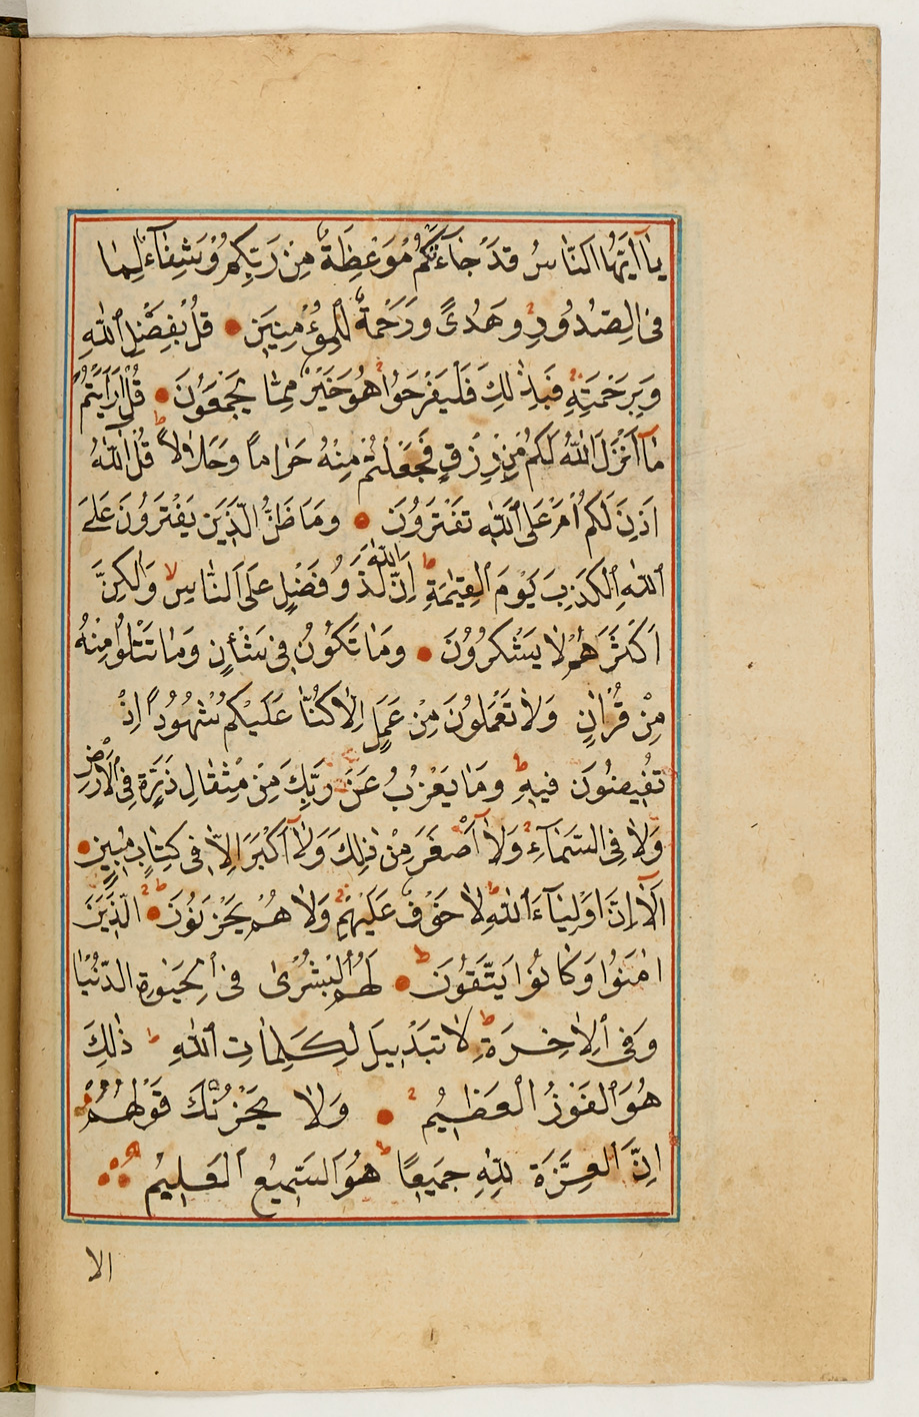 يَا أَيُّهَا النَّاسُ قَدْ جَاءَتْكُمْ مَوْعِظَةٌ مِنْ رَبِّكُمْ وَشِفَاءٌ لِمَا
فِي الصُّدُورِ وَهُدًى وَرَحْمَةٌ لِلْمُؤْمِنِينَ قُلْ بِفَضْلِ اللهِ
وَبِرَحْمَتِهِ فَبِذَلِكَ فَلْيَفْرَحُوا هُوَ خَيْرٌ مِمَّا يَجْمَعُونَ قُلْ أَرَأَيْتُمْ
مَا أَنْزَلَ اللهُ لَكُمْ مِنْ رِزْقٍ فَجَعَلْتُمْ مِنْهُ حَرَامًا وَحَلَالًا قُلْ اللهُ
اَذِنَ لَكُمْ اَمْ عَلَى اللهِ تَفْتَرُونَ وَمَا ظَنُّ الَّذِينَ يَفْتَرُونَ عَلَى
اللهِ الْكَذِبَ يَوْمَ الْقِيمَةِ اِنَّ اللهَ لَذُو فَضْلٍ عَلَى النَّاسِ وَلٰكِنَّ
اَكْثَرَهُمْ لَا يَشْكُرُونَ وَمَا تَكُونُ فِي شَأْنٍ وَمَا تَتْلُوا مِنْهُ
مِنْ قُرْاٰنٍ وَلَا تَعْمَلُونَ مِنْ عَمَلٍ اِلَّا كُنَّا عَلَيْكُمْ شُهُودًا اِذْ
تُفِيضُونَ فِيهِ وَمَا يَعْزُبُ عَنْ رَبِّكَ مِنْ مِثْقَالِ ذَرَّةٍ فِي الْاَرْضِ
وَلَا فِي السَّمَاءِ وَلَا اَصْغَرَ مِنْ ذٰلِكَ وَلَا اَكْبَرَ اِلَّا فِي كِتَابٍ مُبِينٍ
اَلَا اِنَّ اَوْلِيَاءَ اللهِ لَا خَوْفٌ عَلَيْهِمْ وَلَا هُمْ يَحْزَنُونَ الَّذِينَ
اٰمَنُوا وَكَانُوا يَتَّقُونَ لَهُمُ الْبُشْرٰى فِي الْحَيٰوةِ الدُّنْيَا
وَفِي الْاٰخِرَةِ لَا تَبْدِيلَ لِكَلِمَاتِ اللهِ ذٰلِكَ
هُوَ الْفَوْزُ الْعَظِيمُ وَلَا يَحْزُنْكَ قَوْلُهُمْ
اِنَّ الْعِزَّةَ لِلّٰهِ جَمِيعًا هُوَ السَّمِيعُ الْعَلِيمُ
الا